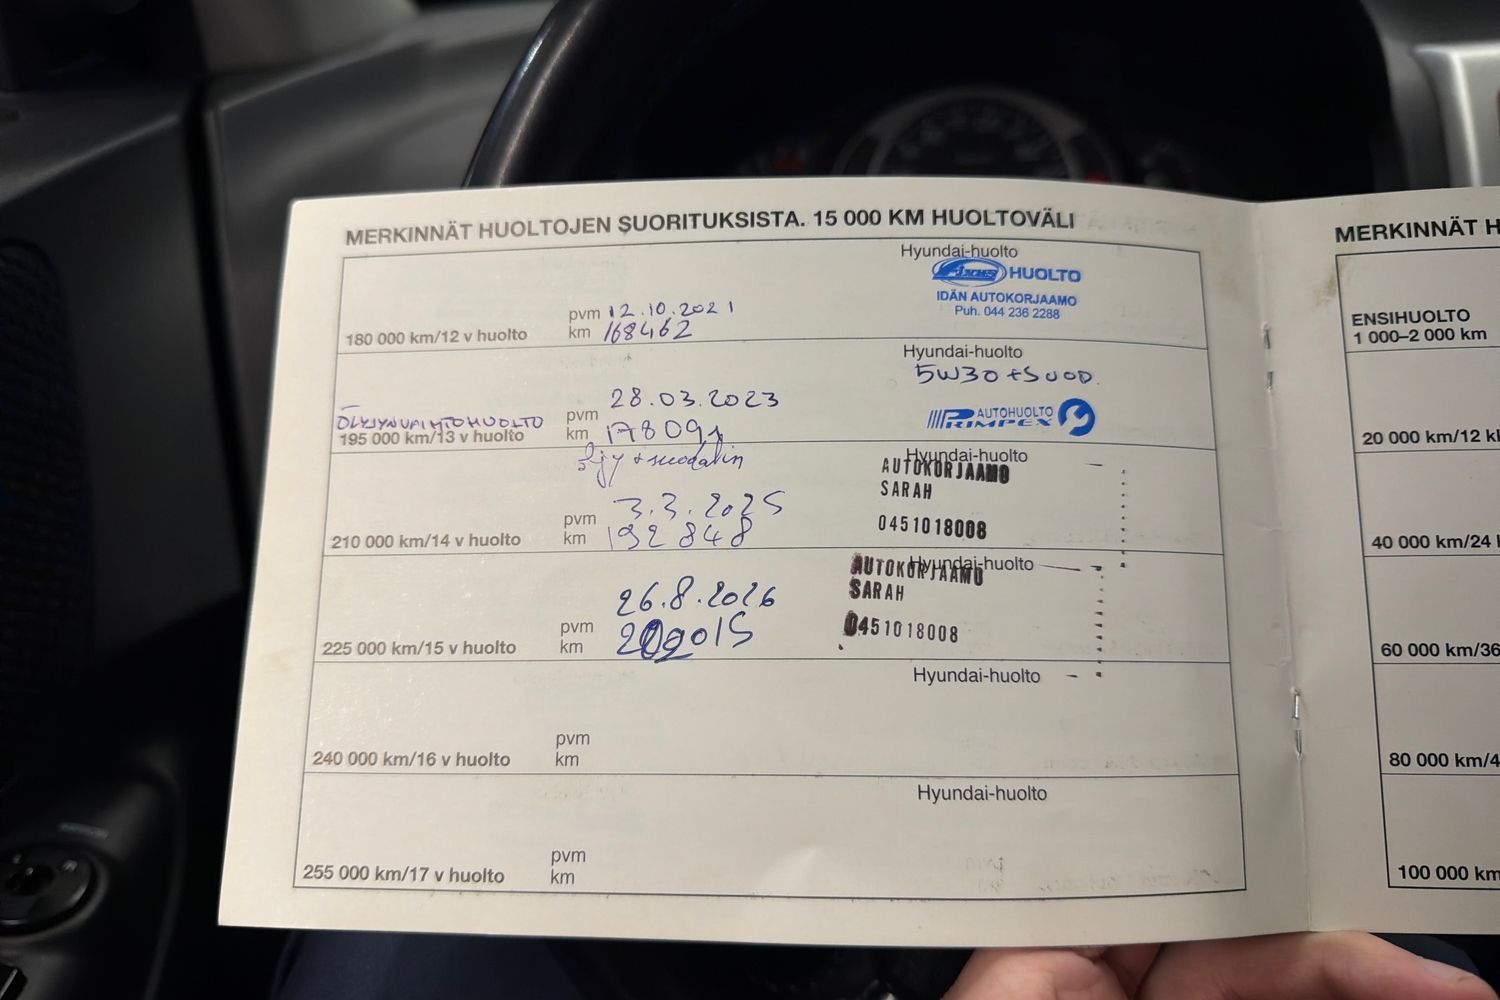 MERKINNÄT HUOLTOJEN SUORITUKSISTA. 15 000 KM HUOLTOVÄLI
Hyundai-huolto
HUOLTO
IDÄN AUTOKORJAAMO
Puh. 044 236 2288
pvm 12.10.2021
180 000 km/12 v huolto km 168462
Hyundai-huolto
5W30 + SUOD.
28.03.2023
AUTOHUOLTO
PRIMPEX
ÖLJYNVAIHTOHUOLTO pvm
195 000 km/13 v huolto km 178091
öljy + suodatin
Hyundai-huolto
AUTOKORJAAMO
SARAH
0451018008
pvm 3.3.2025
210 000 km/14 v huolto km 192848
Hyundai-huolto
AUTOKORJAAMO
SARAH
0451018008
26.8.2026
pvm
225 000 km/15 v huolto km
Hyundai-huolto
pvm
240 000 km/16 v huolto km
Hyundai-huolto
pvm
255 000 km/17 v huolto km
MERKINNÄT H
ENSIHUOLTO
1 000–2 000 km
20 000 km/12 kk
40 000 km/24
60 000 km/36
80 000 km/4
100 000 km